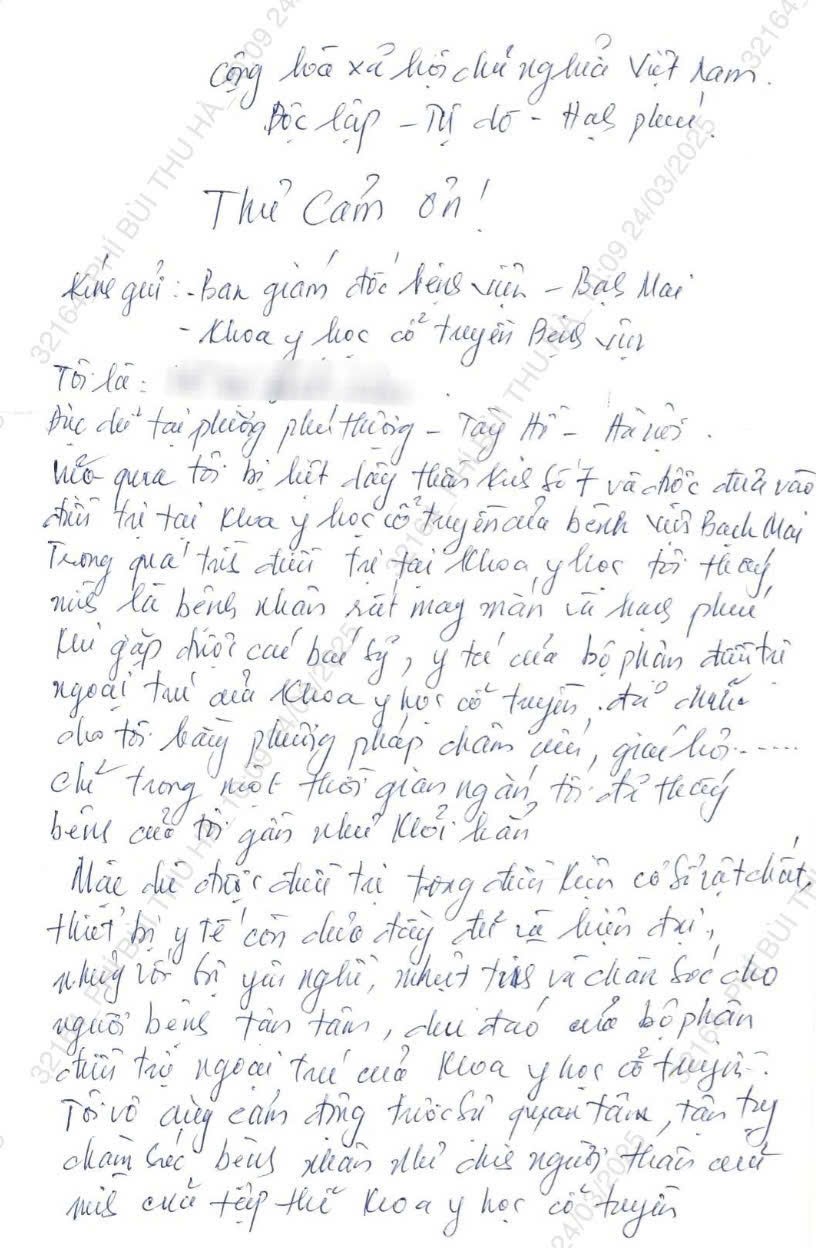 Cộng hoà xã hội chủ nghĩa Việt Nam.
Độc lập - Tự do - Hạnh phúc.
Thư Cảm ơn!
Kính gửi: - Ban giám đốc bệnh viện - Bạch Mai
- Khoa y học cổ truyền Bệnh viện
Tôi là:
tại phường phú thượng - Tây Hồ - Hà nội.
qua tôi bị liệt dây thần kinh số 7 và được đưa vào
điều trị tại khoa y học cổ truyền của bệnh viện Bạch Mai
Trong quá trình điều trị tại khoa y học tôi thấy
mình là bệnh nhân rất may mắn và hạnh phúc
khi gặp được các bác sỹ, y tá của bộ phận điều trị
ngoại trú của khoa y học cổ truyền, đã chữa
cho tôi bằng phương pháp châm cứu, giác hơi......
chỉ trong một thời gian ngắn, tôi đã thấy
bệnh của tôi gần như khỏi hẳn
Mặc dù được điều trị trong điều kiện cơ sở vật chất,
thiết bị y tế còn chưa đầy đủ và hiện đại,
nhưng với sự yêu nghề, nhiệt tình và chăn sóc cho
người bệnh tận tâm, chu đáo của bộ phận
điều trị ngoại trú của khoa y học cổ truyền.
Tôi vô cùng cảm động trước sự quan tâm, tận tụy
chăm sóc bệnh nhân như chính người thân của
mình của tập thể khoa y học cổ truyền
32164_PHÍ BÙI THU HÀ_10:09 24/03/2025